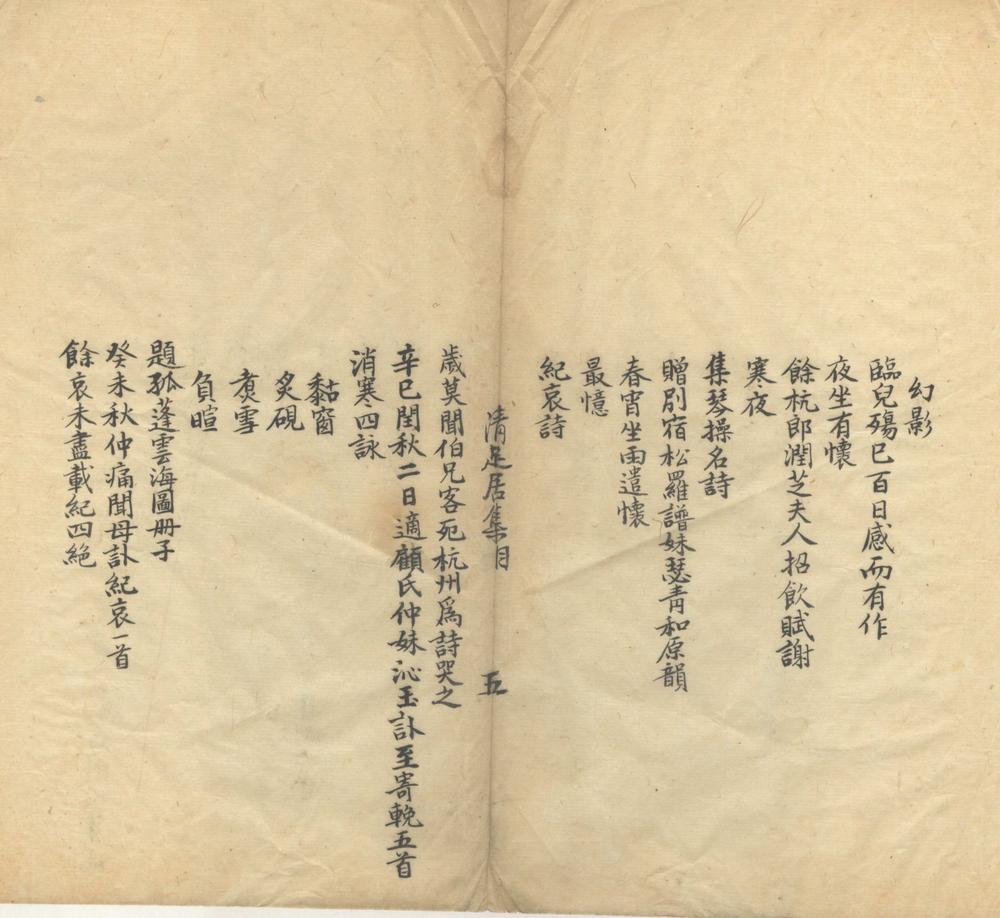 幻影
臨兒殤已百日感而有作
夜坐有懷
餘杭郎潤芝夫人招飲賦謝
寒夜
集琴操名詩
贈別宿松羅譜妹瑟青和原韻
春宵坐雨遣懷
最憶
紀哀詩
清足居集目 五
歲莫聞伯兄客死杭州爲詩哭之
辛巳閏秋二日適顧氏仲妹沁玉訃至寄輓五首
消寒四詠
黏窗
炙硯
煑雪
負暄
題孤蓬雲海圖册子
癸未秋仲痛聞母訃紀哀一首
餘哀未盡載紀四絶